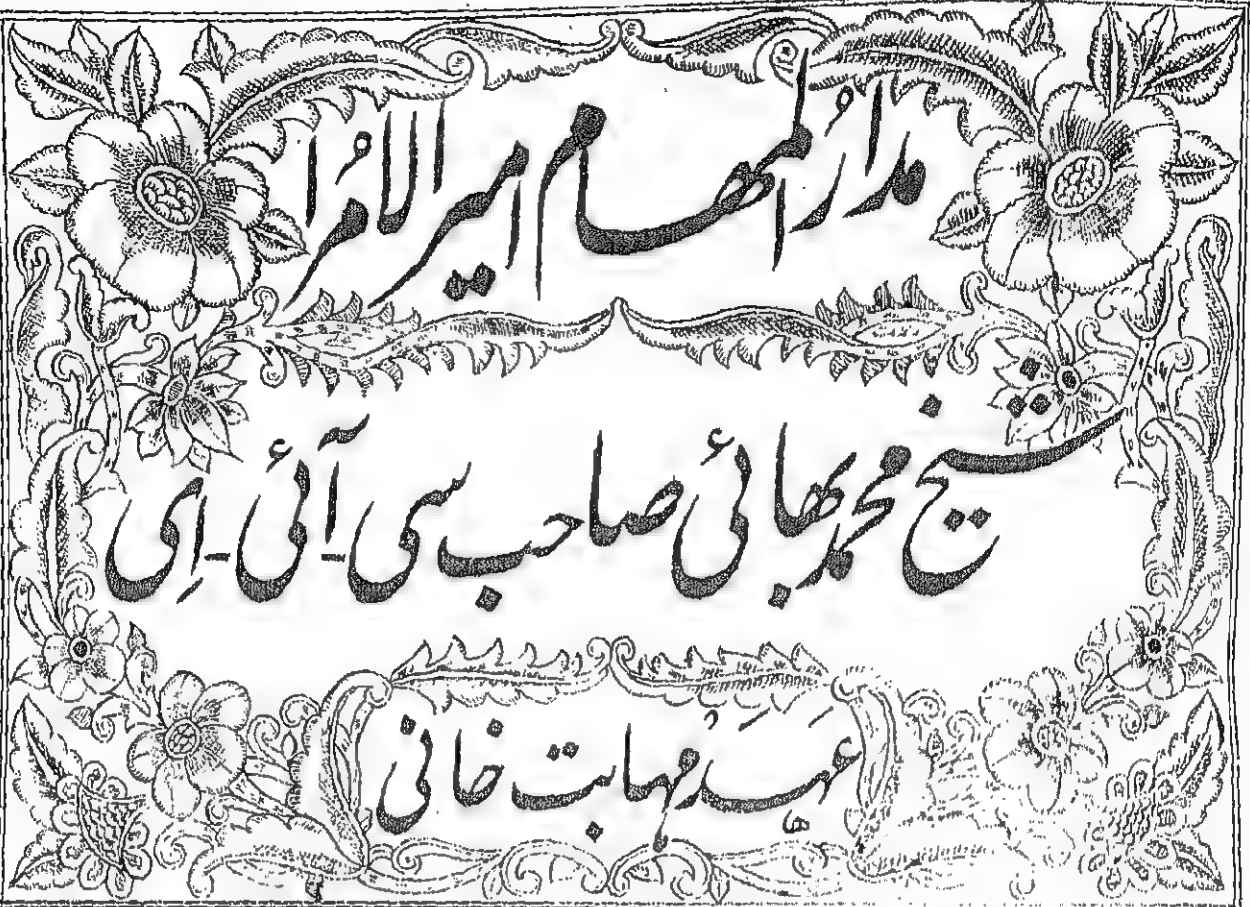 مدارُ المہام امیر الامُرا
شیخ محمد بھائی صاحب سی-آئی-ای
عہدِ مہابت خانی